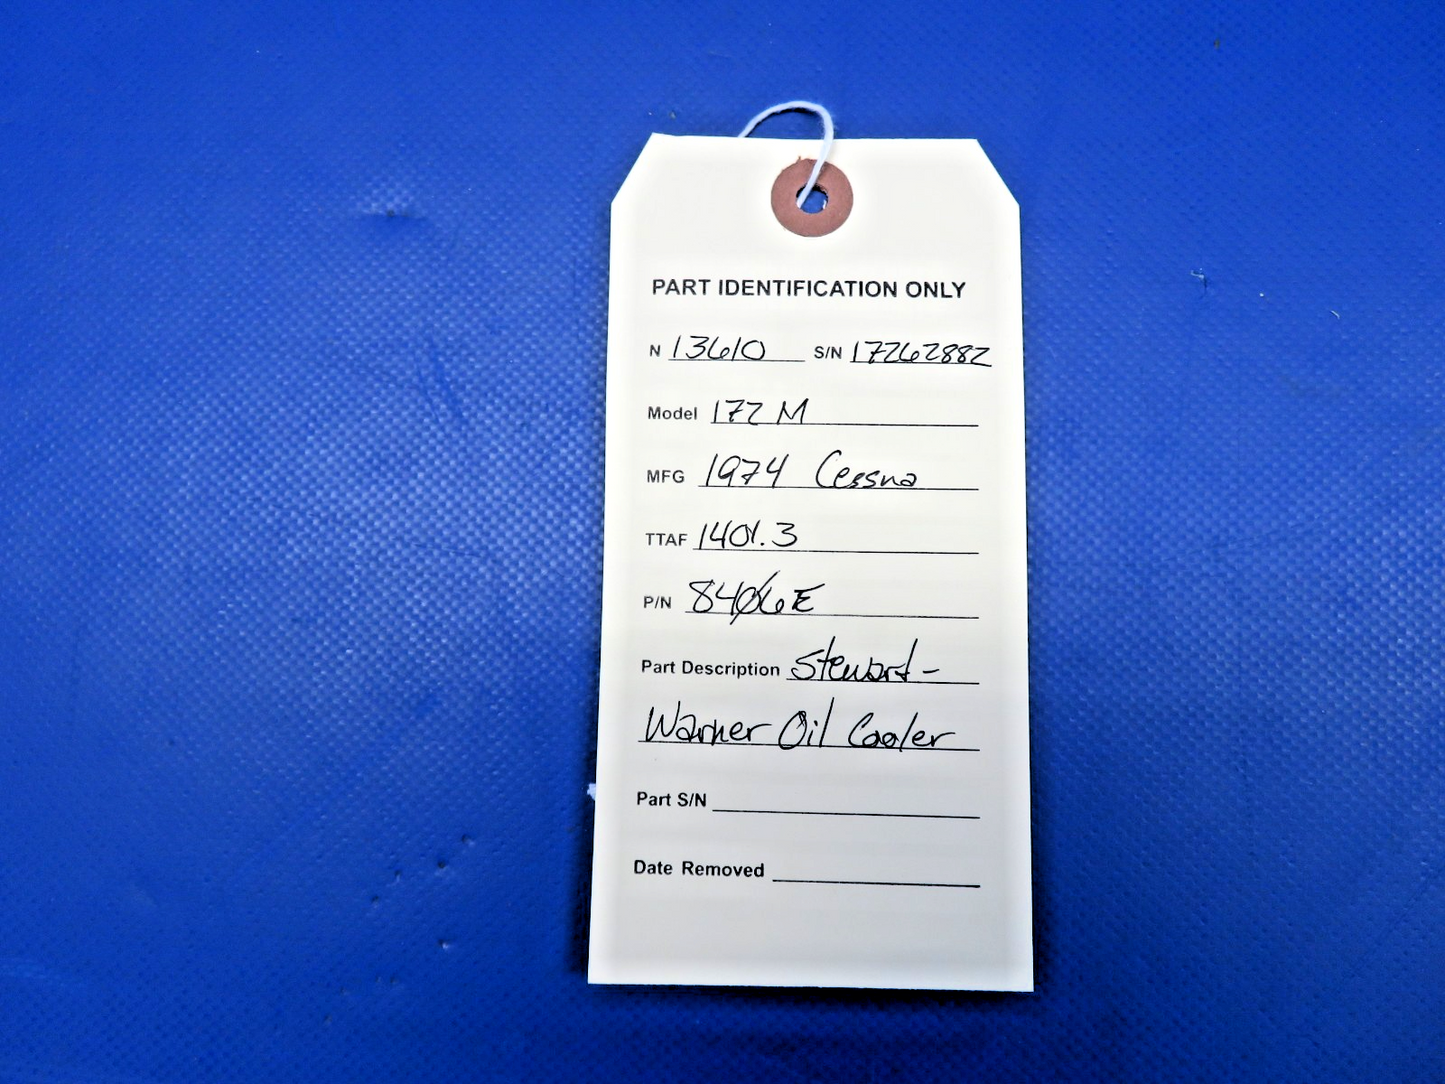 PART IDENTIFICATION ONLY
N 13610 S/N 17262882
Model 172 M
MFG 1974 Cessna
TTAF 1401.3
P/N 8406E
Part Description Stewart-
Warner Oil Cooler
Part S/N
Date Removed